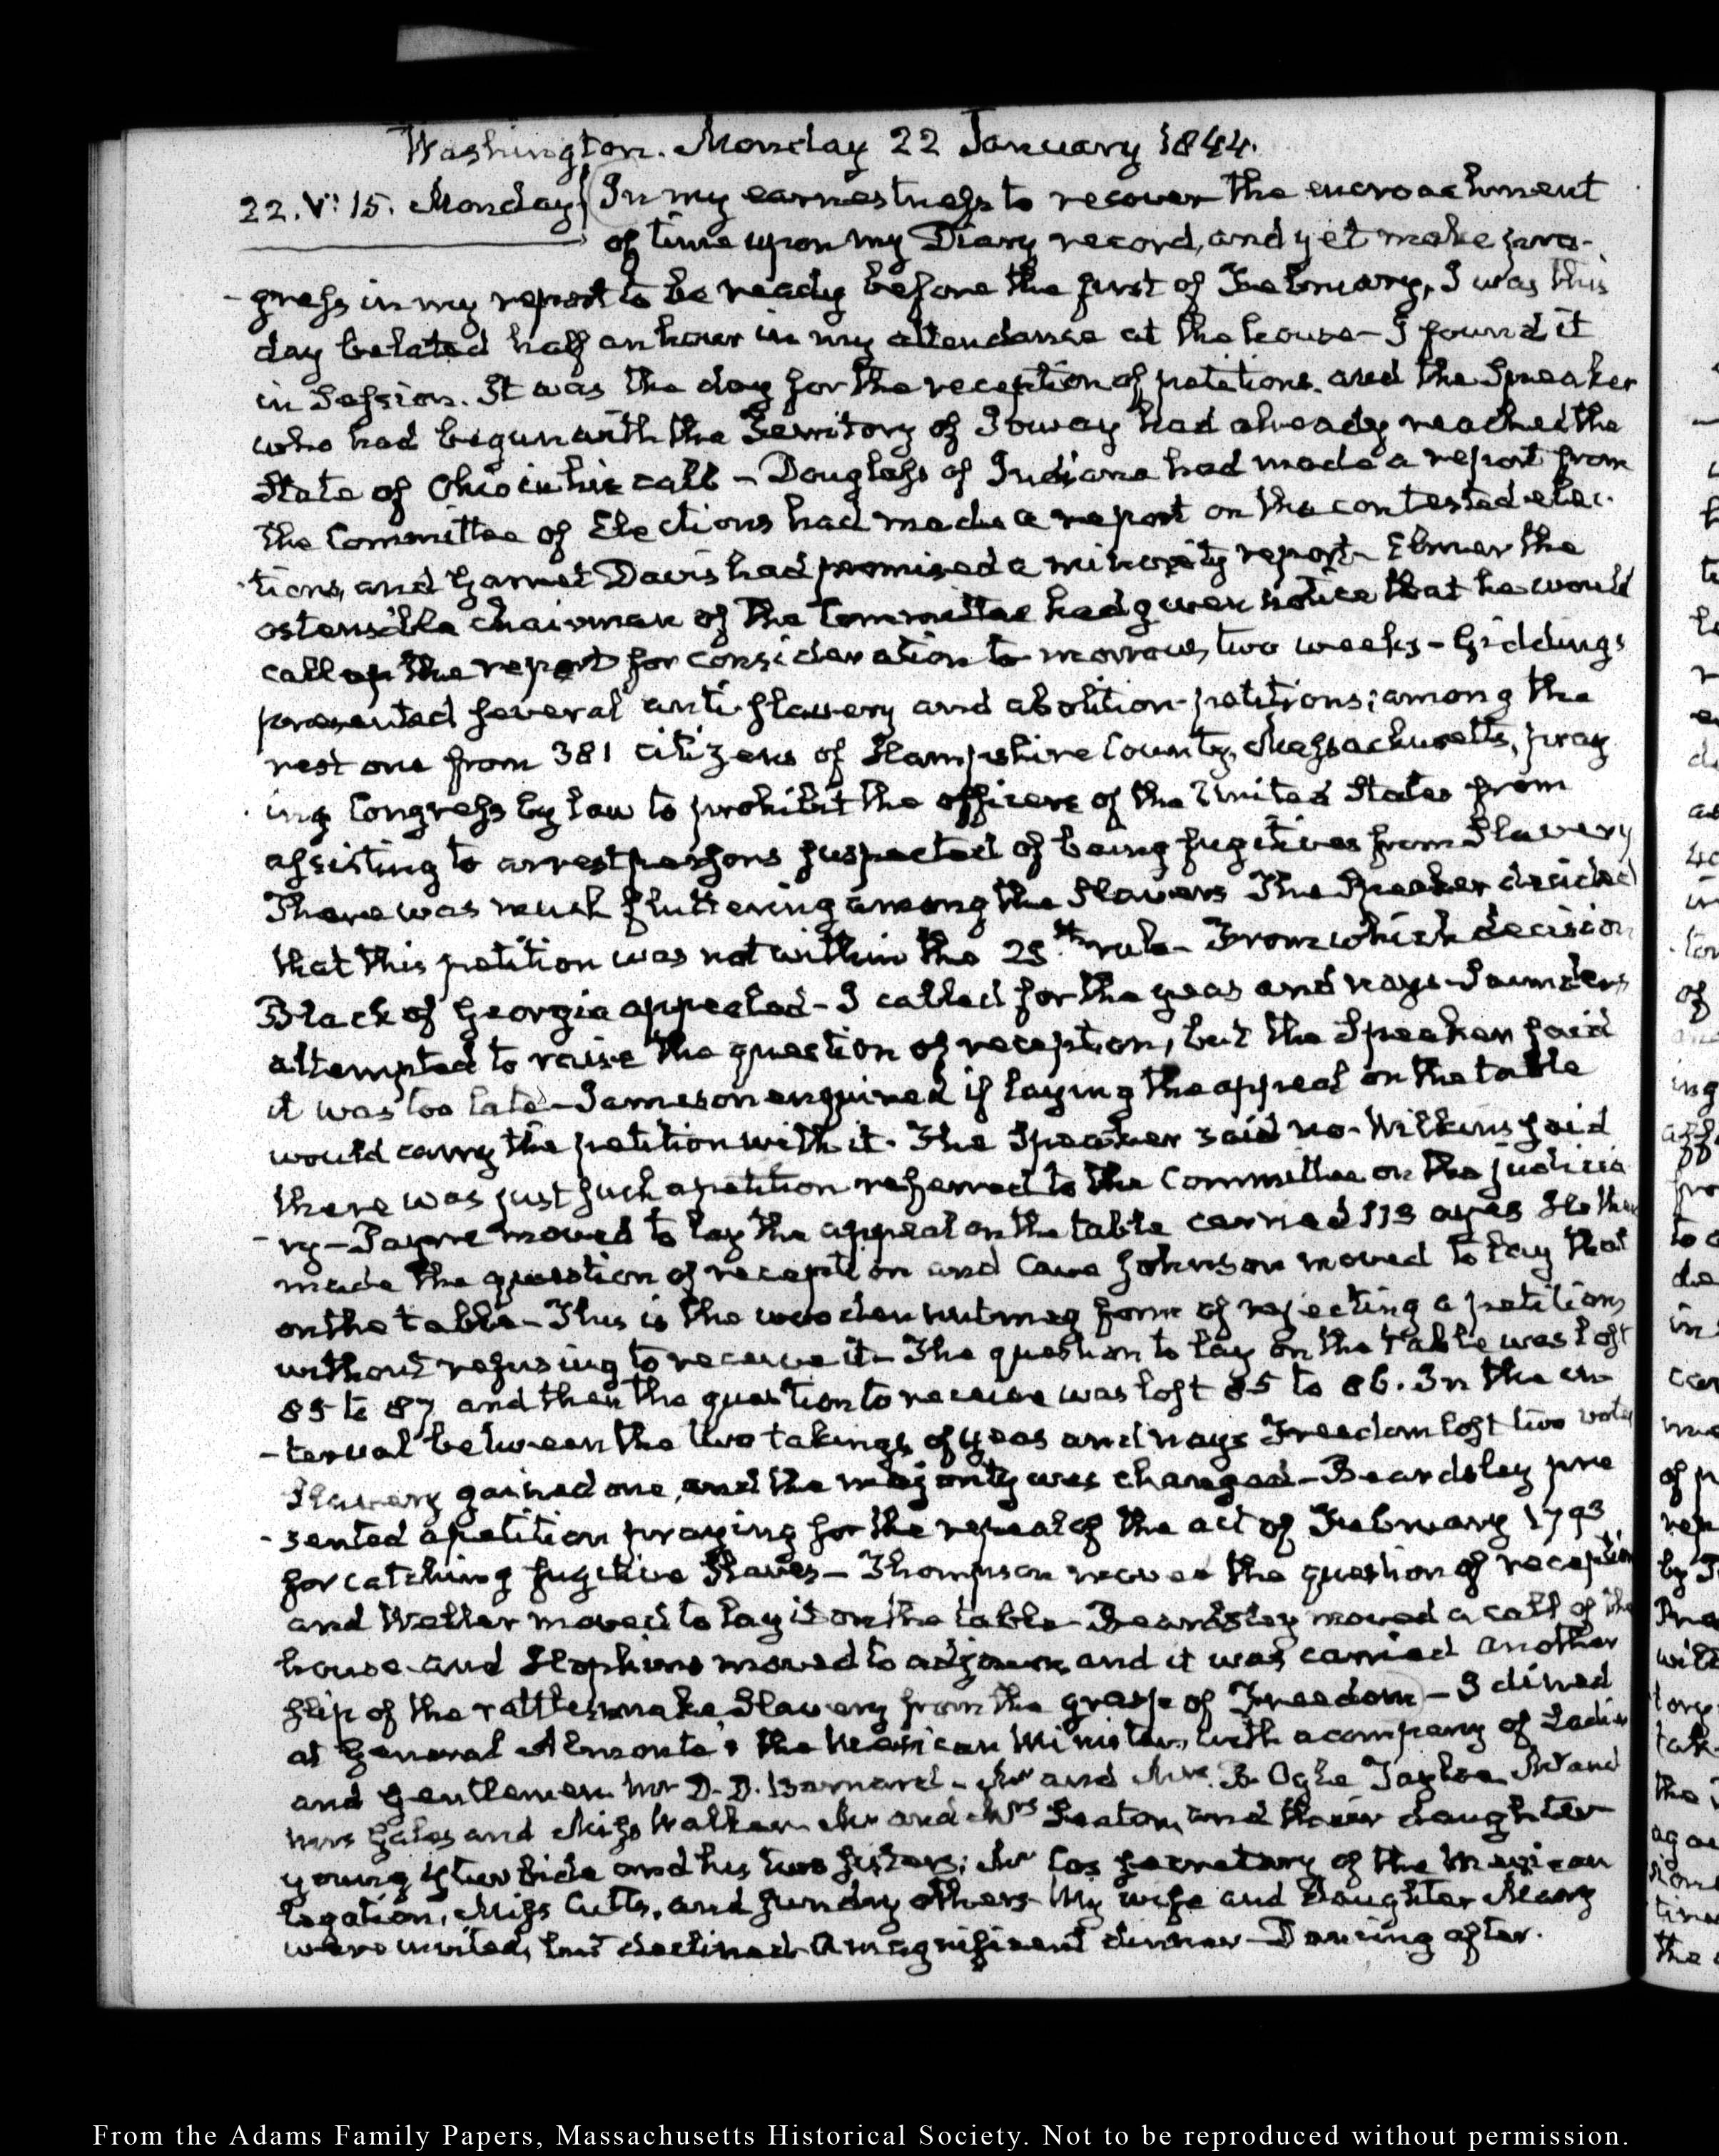 Washington. Monday 22 January 1844.
22. V: 15. Monday. In my earnestness to recover the encroachment
of time upon my Diary record, and yet make pro-
-gress in my report to be ready before the first of February, I was this
day belated half an hour in my attendance at the house - I found it
in Session. It was the day for the reception of petitions. and the Speaker
who had begun with the Territory of Ioway had already reached the
State of Ohio in his call - Douglass of Indiana had made a report from
the Committee of Elections had made a report on the contested elec-
-tions, and Garret Davis had promised a minority report - Elmer the
ostensible chairman of the Committee had given notice that he would
call up the report for consideration to morrow two weeks - Giddings
presented several anti-slavery and abolition-petitions; among the
rest one from 381 citizens of Hampshire County, Massachusetts, pray
-ing Congress by law to prohibit the officers of the United States from
assisting to arrest persons suspected of being fugitives from Slavery
There was much fluttering among the Slavers The Speaker decided
that this petition was not within the 25th. rule - From which decision
Black of Georgia appealed - I called for the yeas and nays - Saunders
attempted to raise the question of reception, but the Speaker said
it was too late - Jameson enquired if laying the appeal on the table
would carry the petition with it. The Speaker said no - Wilkins said
there was just such a petition referred to the Committee on the judicia
-ry - Payne moved to lay the appeal on the table carried 113 ayes He then
made the question of reception and Cave Johnson moved to lay that
on the table - This is the wooden nutmeg form of rejecting a petition
without refusing to receive it - The question to lay on the table was lost
85 to 87 and then the question to receive was lost 85 to 86. In the in
-terval between the two takings of yeas and nays Freedom lost two votes
Slavery gained one, and the majority was changed - Beardsley pre
-sented a petition praying for the repeal of the act of February 1793
for catching fugitive Slaves - Thompson moved the question of reception
and Weller moved to lay it on the table - Beardsley moved a call of the
house and Hopkins moved to adjourn, and it was carried another
slip of the rattlesnake Slavery from the grasp of Freedom - I dined
at General Almonte's the Mexican Minister, with a company of Ladies
and Gentlemen Mr D. D. Barnard - Mr and Mrs. B. Ogle Tayloe Mr and
Mrs Gales and Miss Walker. Mr and Mrs Seaton, and their daughter
young Yturbide and his two sisters; Mr Cos secretary of the Mexican
Legation, Miss Cutts, and sundry others - My wife and Daughter Mary
were invited, but declined - A magnificent dinner - Dancing after.
From the Adams Family Papers, Massachusetts Historical Society. Not to be reproduced without permission.